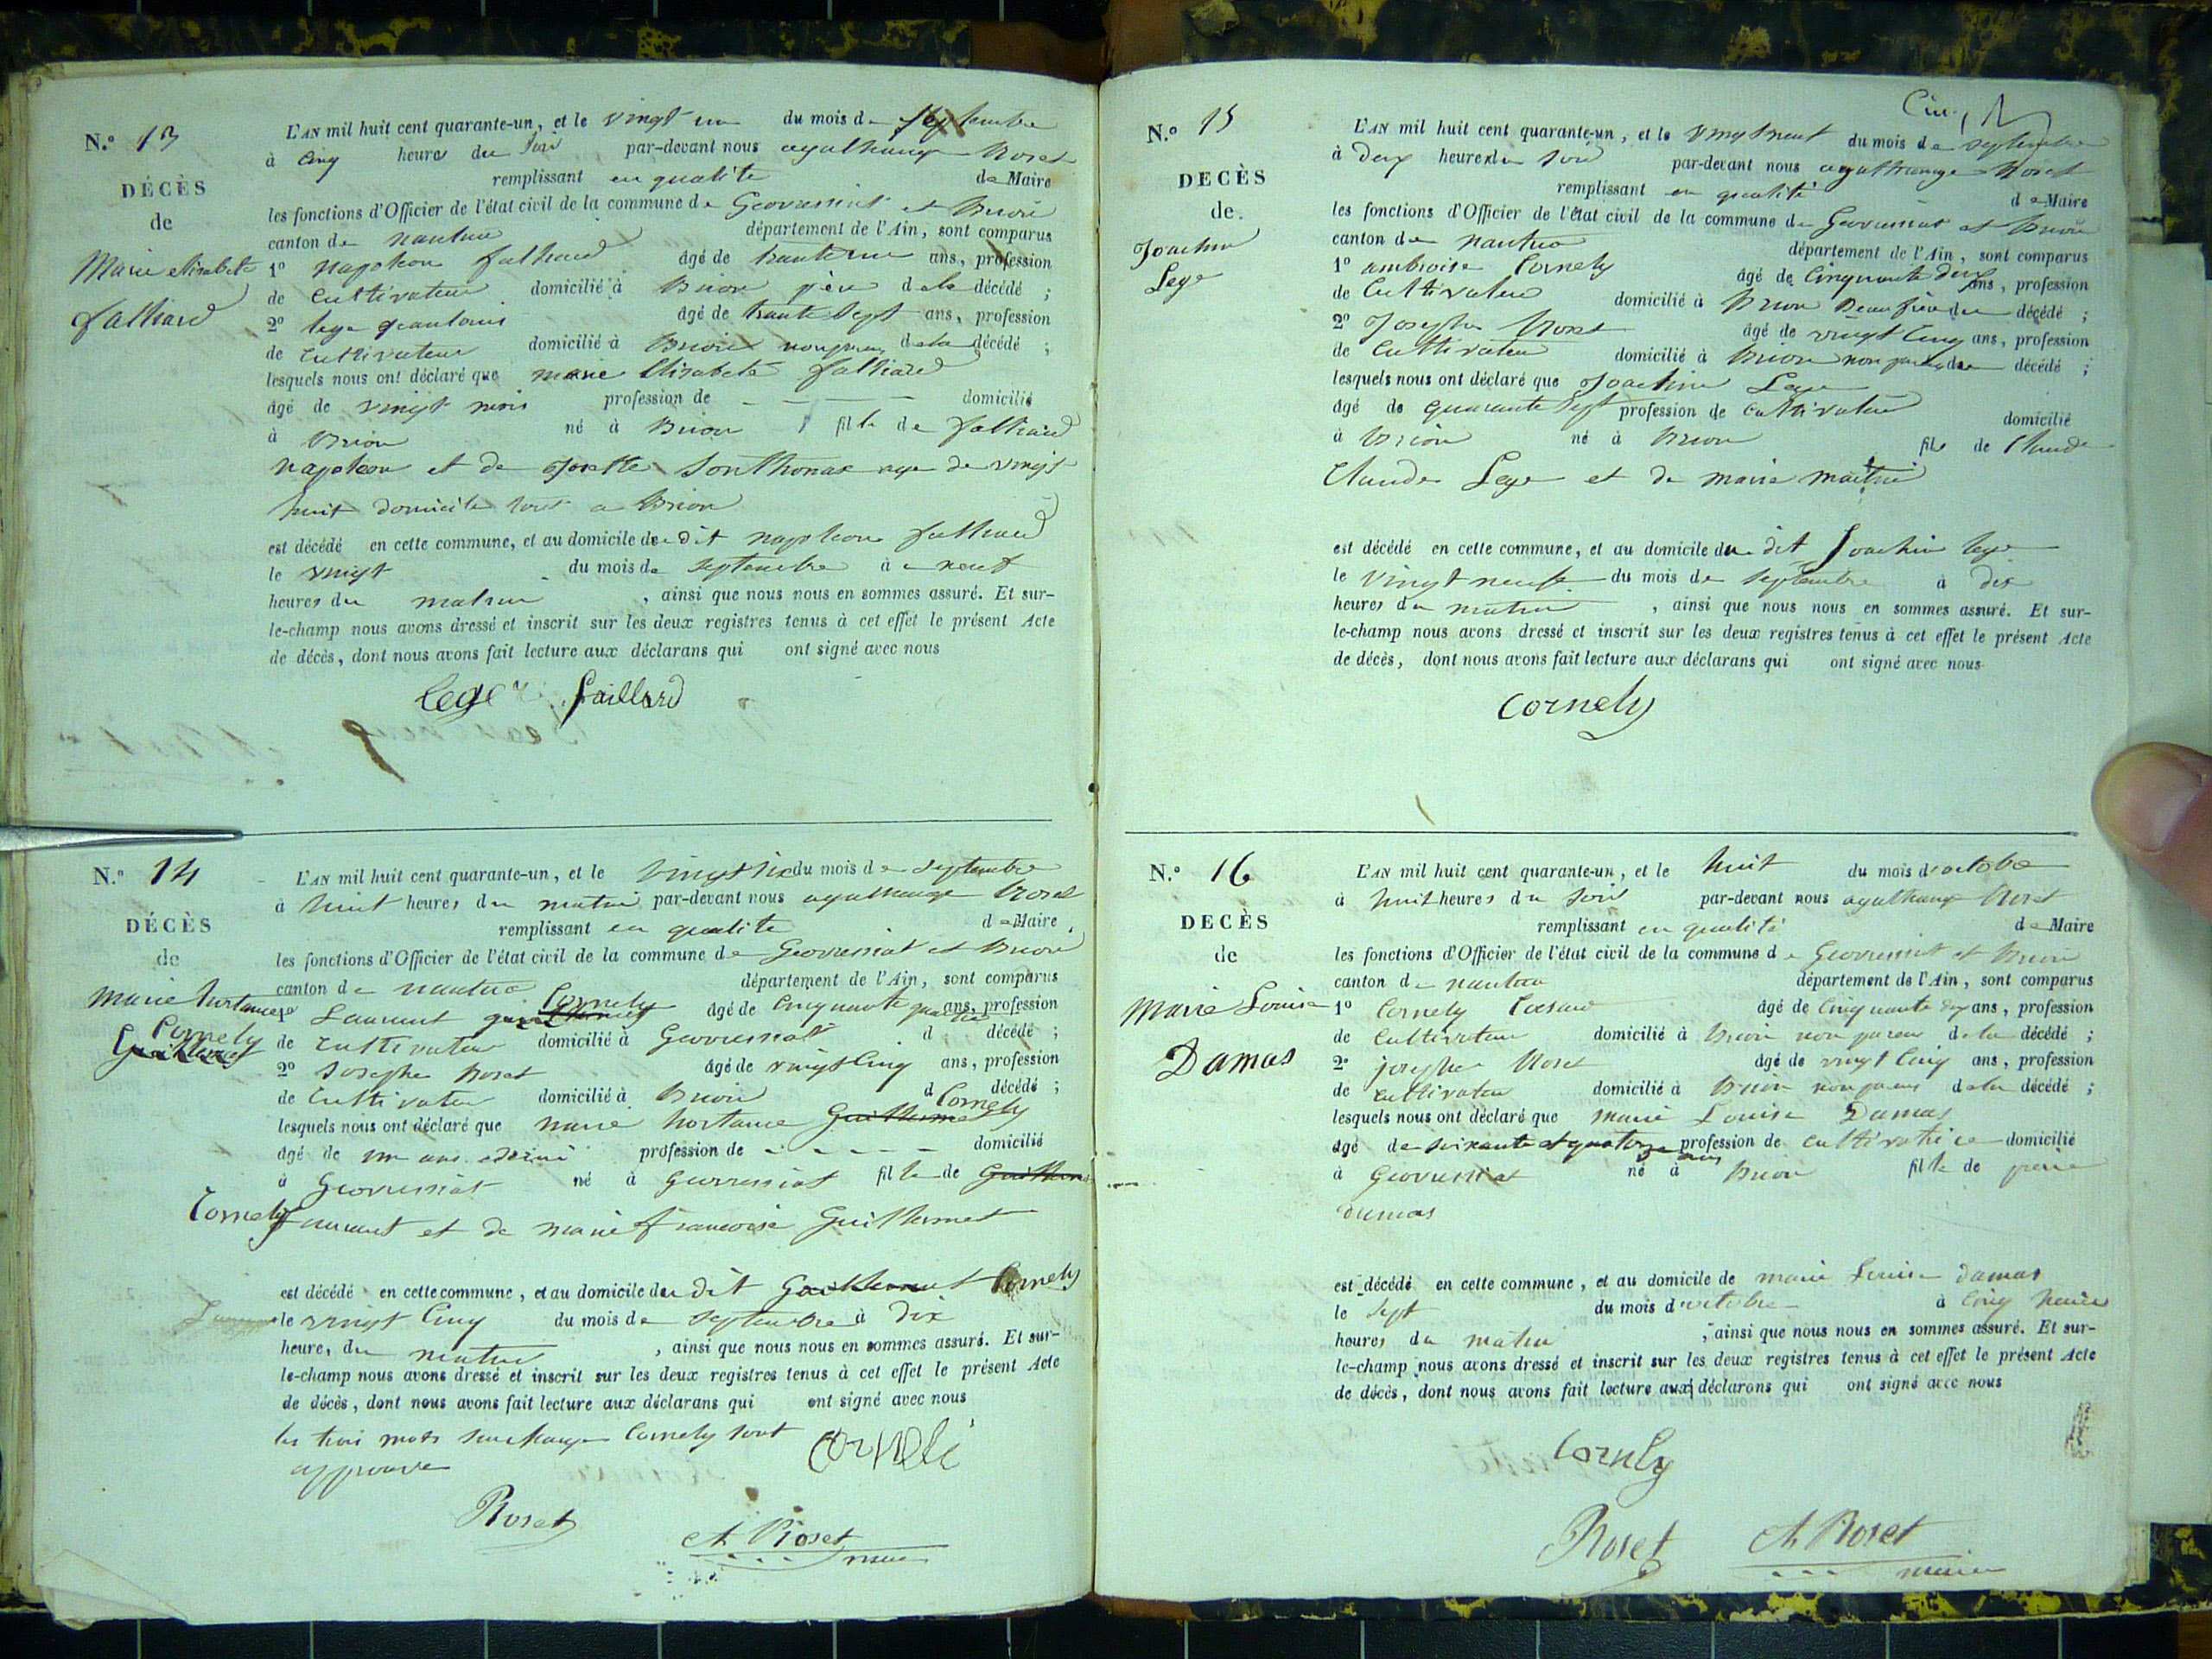 N.º 13
DÉCÈS
de
Marie elisabete
falliard
L'AN mil huit cent quarante-un, et le vingt un du mois de septembre
à cinq heures du soir par-devant nous agathange Roset
remplissant en qualité de Maire
les fonctions d'Officier de l'état civil de la commune de Geovressiat et Brion
canton de nantua département de l'Ain, sont comparus
1º napoleon falliard âgé de trante un ans, profession
de cultivateur domicilié à Brion père de la décédé ;
2º lege jeanlouis âgé de trante sept ans, profession
de cultivateur domicilié à Brion non parens de la décédé ;
lesquels nous ont déclaré que marie Elisabete falliard
âgé de vingt mois profession de domicilié
à Brion né à Brion fille de falliard
napoleon et de josette Sonthonax age de vingt
huit domicile tout a Brion
est décédé en cette commune, et au domicile du dit napoleon falliard
le vingt du mois de septembre à neuf
heures du matin , ainsi que nous nous en sommes assuré. Et sur-
le-champ nous avons dressé et inscrit sur les deux registres tenus à cet effet le présent Acte
de décès, dont nous avons fait lecture aux déclarans qui ont signé avec nous
Lege faillard
N.º 14
DÉCÈS
de
Marie hortance
Cornely
Guillermet
L'AN mil huit cent quarante-un, et le vingt six du mois de septembre
à huit heures du matin par-devant nous agathange Roset
remplissant en qualite de Maire
les fonctions d'Officier de l'état civil de la commune de Geovressiat et Brion
canton de nantua département de l'Ain, sont comparus
1º Laurent guillermet Cornely âgé de cinquante quatre ans, profession
de cultivateur domicilié à Geovressiat d décédé ;
2º Josephe Roset âgé de vingt cinq ans, profession
de cultivateur domicilié à Brion d décédé ;
lesquels nous ont déclaré que marie hortance Guillerme Cornely
âgé de un ans edemi profession de domicilié
à Geovressiat né à Geovressiat fille de Guillerm
Cornely laurent et de marie francoise Guillermet
est décédé en cette commune, et au domicile du dit Guillermet Cornely
le vingt cinq du mois de septembre à dix
heures du matin , ainsi que nous nous en sommes assuré. Et sur-
le-champ nous avons dressé et inscrit sur les deux registres tenus à cet effet le présent Acte
de décès, dont nous avons fait lecture aux déclarans qui ont signé avec nous
les trois mots surcharge Cornely sont
approuve
Roset
A Roset
maire
N.º 15
DECÈS
de
Joachin
Lege
L'AN mil huit cent quarante-un, et le vingt neuf du mois de septembre
à deux heures du soir par-devant nous agathange Roset
remplissant en qualité de Maire
les fonctions d'Officier de l'état civil de la commune de Geovressiat et Brion
canton de nantua département de l'Ain, sont comparus
1º ambroise Cornely âgé de cinquante deux ans, profession
de Cultivateur domicilié à Brion Beau frère du décédé ;
2º Josephe Roset âgé de vingt cinq ans, profession
de Cultivateur domicilié à Brion non parens du décédé ;
lesquels nous ont déclaré que Joachin Lege
âgé de quarante sept profession de cultivateur domicilié
à Brion né à Brion fils de Claude
Claude Lege et de marie maitre
est décédé en cette commune, et au domicile du dit Joachin lege
le vingt neuf du mois de septembre à dix
heures du matin , ainsi que nous nous en sommes assuré. Et sur-
le-champ nous avons dressé et inscrit sur les deux registres tenus à cet effet le présent Acte
de décès, dont nous avons fait lecture aux déclarans qui ont signé avec nous
Cornely
N.º 16
DECÈS
de
Marie Louise
Damas
L'AN mil huit cent quarante-un, et le huit du mois d'octobre
à huit heures du soir par-devant nous agathange Roset
remplissant en qualité de Maire
les fonctions d'Officier de l'état civil de la commune de Geovressiat et Brion
canton de nantua département de l'Ain, sont comparus
1º Cornely Cesaire âgé de cinquante deux ans, profession
de cultivateur domicilié à Brion non parens de la décédé ;
2º josephe Roset âgé de vingt cinq ans, profession
de cultivateur domicilié à Brion non parens de la décédé ;
lesquels nous ont déclaré que marie Louise Damas
âgé de soixante et quatorze ans profession de cultivatrice domicilié
à Geovressiat né à Brion fille de
damas
est décédé en cette commune, et au domicile de marie Louise damas
le sept du mois d'octobre à cinq heures
heures du matin , ainsi que nous nous en sommes assuré. Et sur-
le-champ nous avons dressé et inscrit sur les deux registres tenus à cet effet le présent Acte
de décès, dont nous avons fait lecture aux déclarans qui ont signé avec nous
Cornely
Roset
A Roset
maire